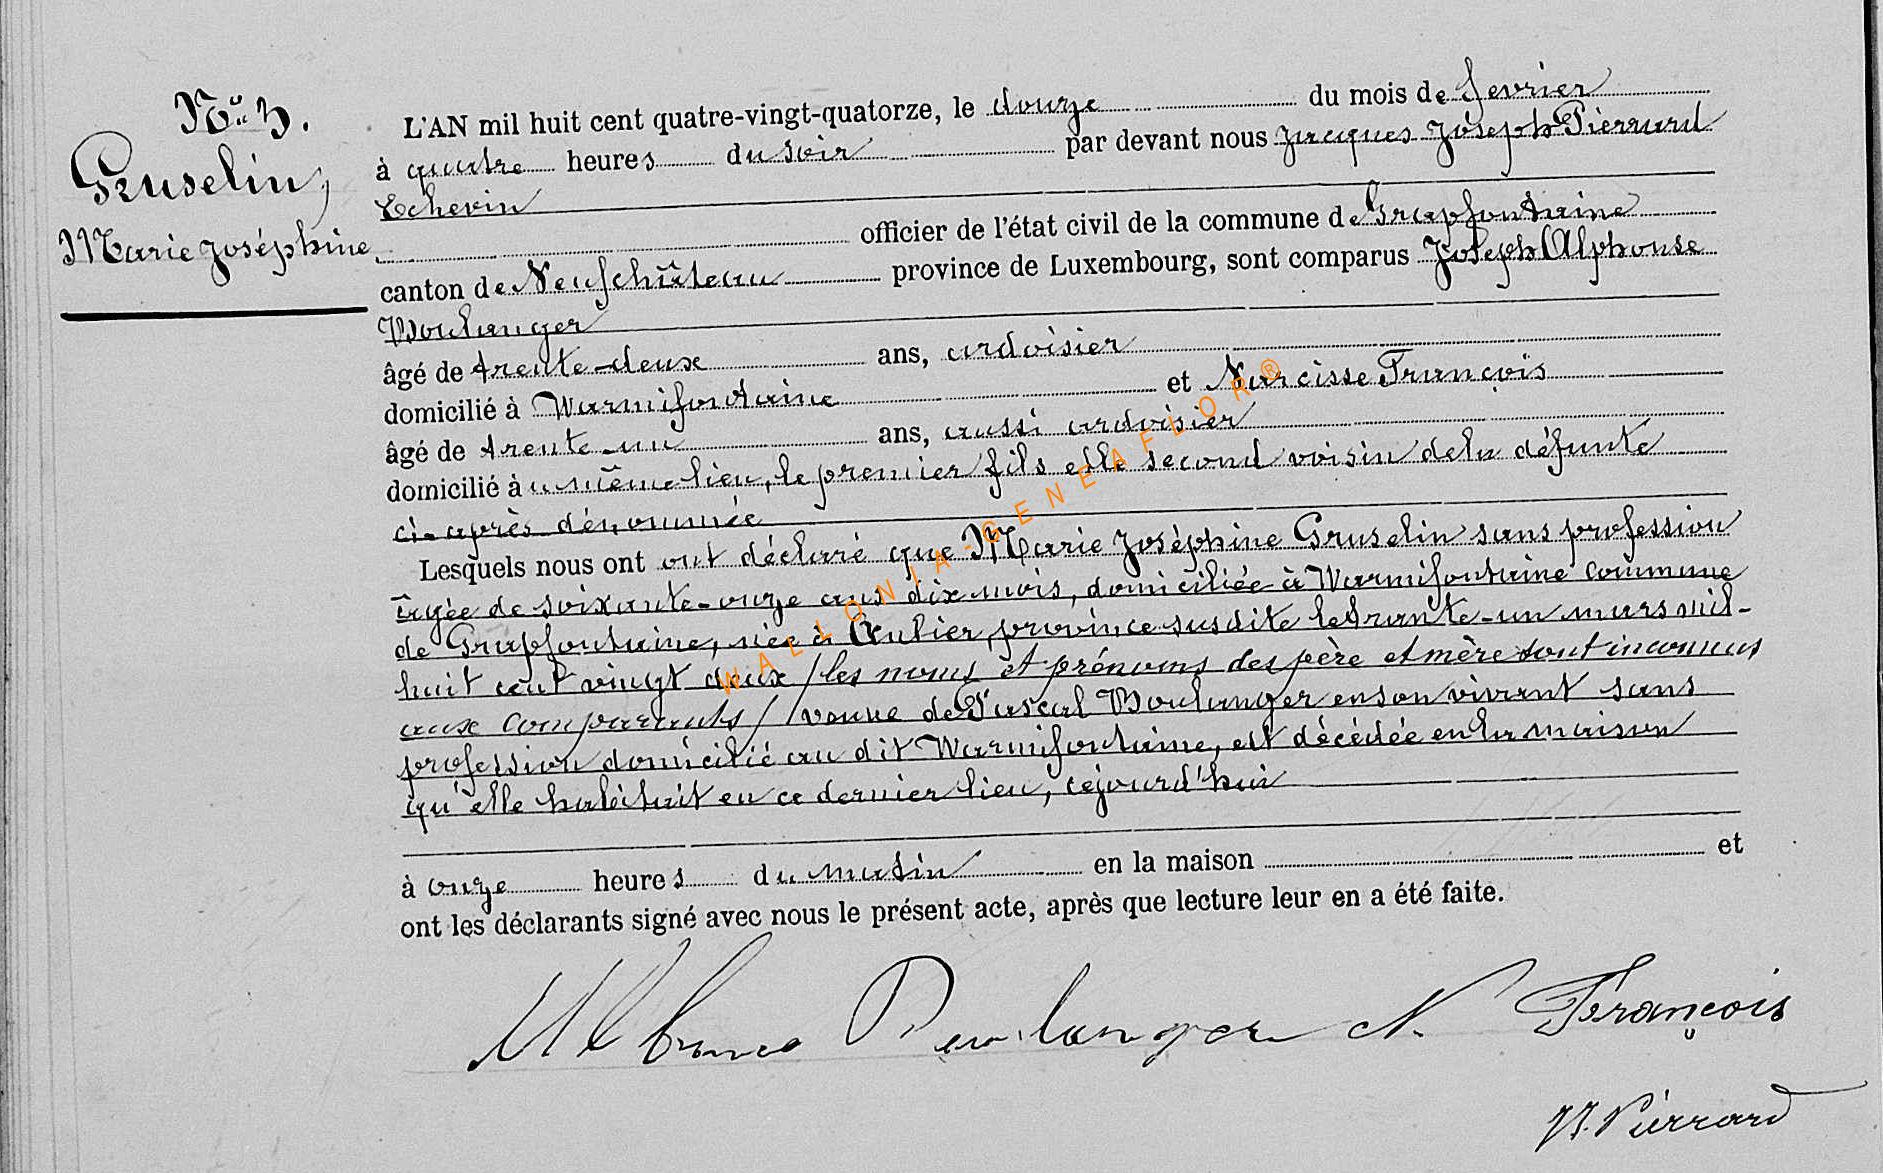 N° 3.
Gruselin,
Marie Joséphine
L'AN mil huit cent quatre-vingt-quatorze, le douze du mois de fevrier
à quatre heures du soir par devant nous Jacques Joseph Pierrard
Echevin
officier de l'état civil de la commune de Grapfontaine
canton de Neufchâteau province de Luxembourg, sont comparus Joseph Alphonse
Boulanger
âgé de trente-deux ans, ardoisier
domicilié à Warmifontaine et Narcisse François
âgé de trente-un ans, aussi ardoisier
domicilié à u même lieu, le premier fils et le second voisin de la défunte
ci-après dénommée
Lesquels nous ont ont déclaré que Marie Joséphine Gruselin sans profession
âgée de soixante-onze ans dix mois, domiciliée à Warmifontaine commune
de Grapfontaine, née à Anlier, province susdite le trante-un mars mil-
huit cent vingt deux /les noms et prénoms des père et mère sont inconnus
aux comparants/ veuve de Pascal Boulanger en son vivant sans
profession domicilié au dit Warmifontaine, est décédée en la maison
qu'elle habitait en ce dernier lieu, cejourd'hui
à onze heures du matin en la maison et
ont les déclarants signé avec nous le présent acte, après que lecture leur en a été faite.
Boulanger N. François
JJ. Pierrard
WALLONIA-GENEAFLOR®